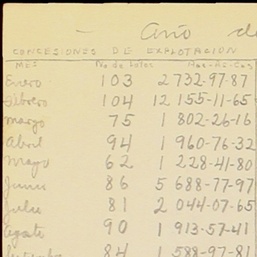 Año de
CONCESIONES DE EXPLOTACION
MES No. de Lotes Has-As-Cas
Enero 103 2732-97-87
Febrero 104 12155-11-65
Marzo 75 1802-26-16
Abril 94 1960-76-32
Mayo 62 1228-41-80
Junio 86 5688-77-97
Julio 81 2044-07-65
Agosto 90 1913-57-41
84 1588-97-81